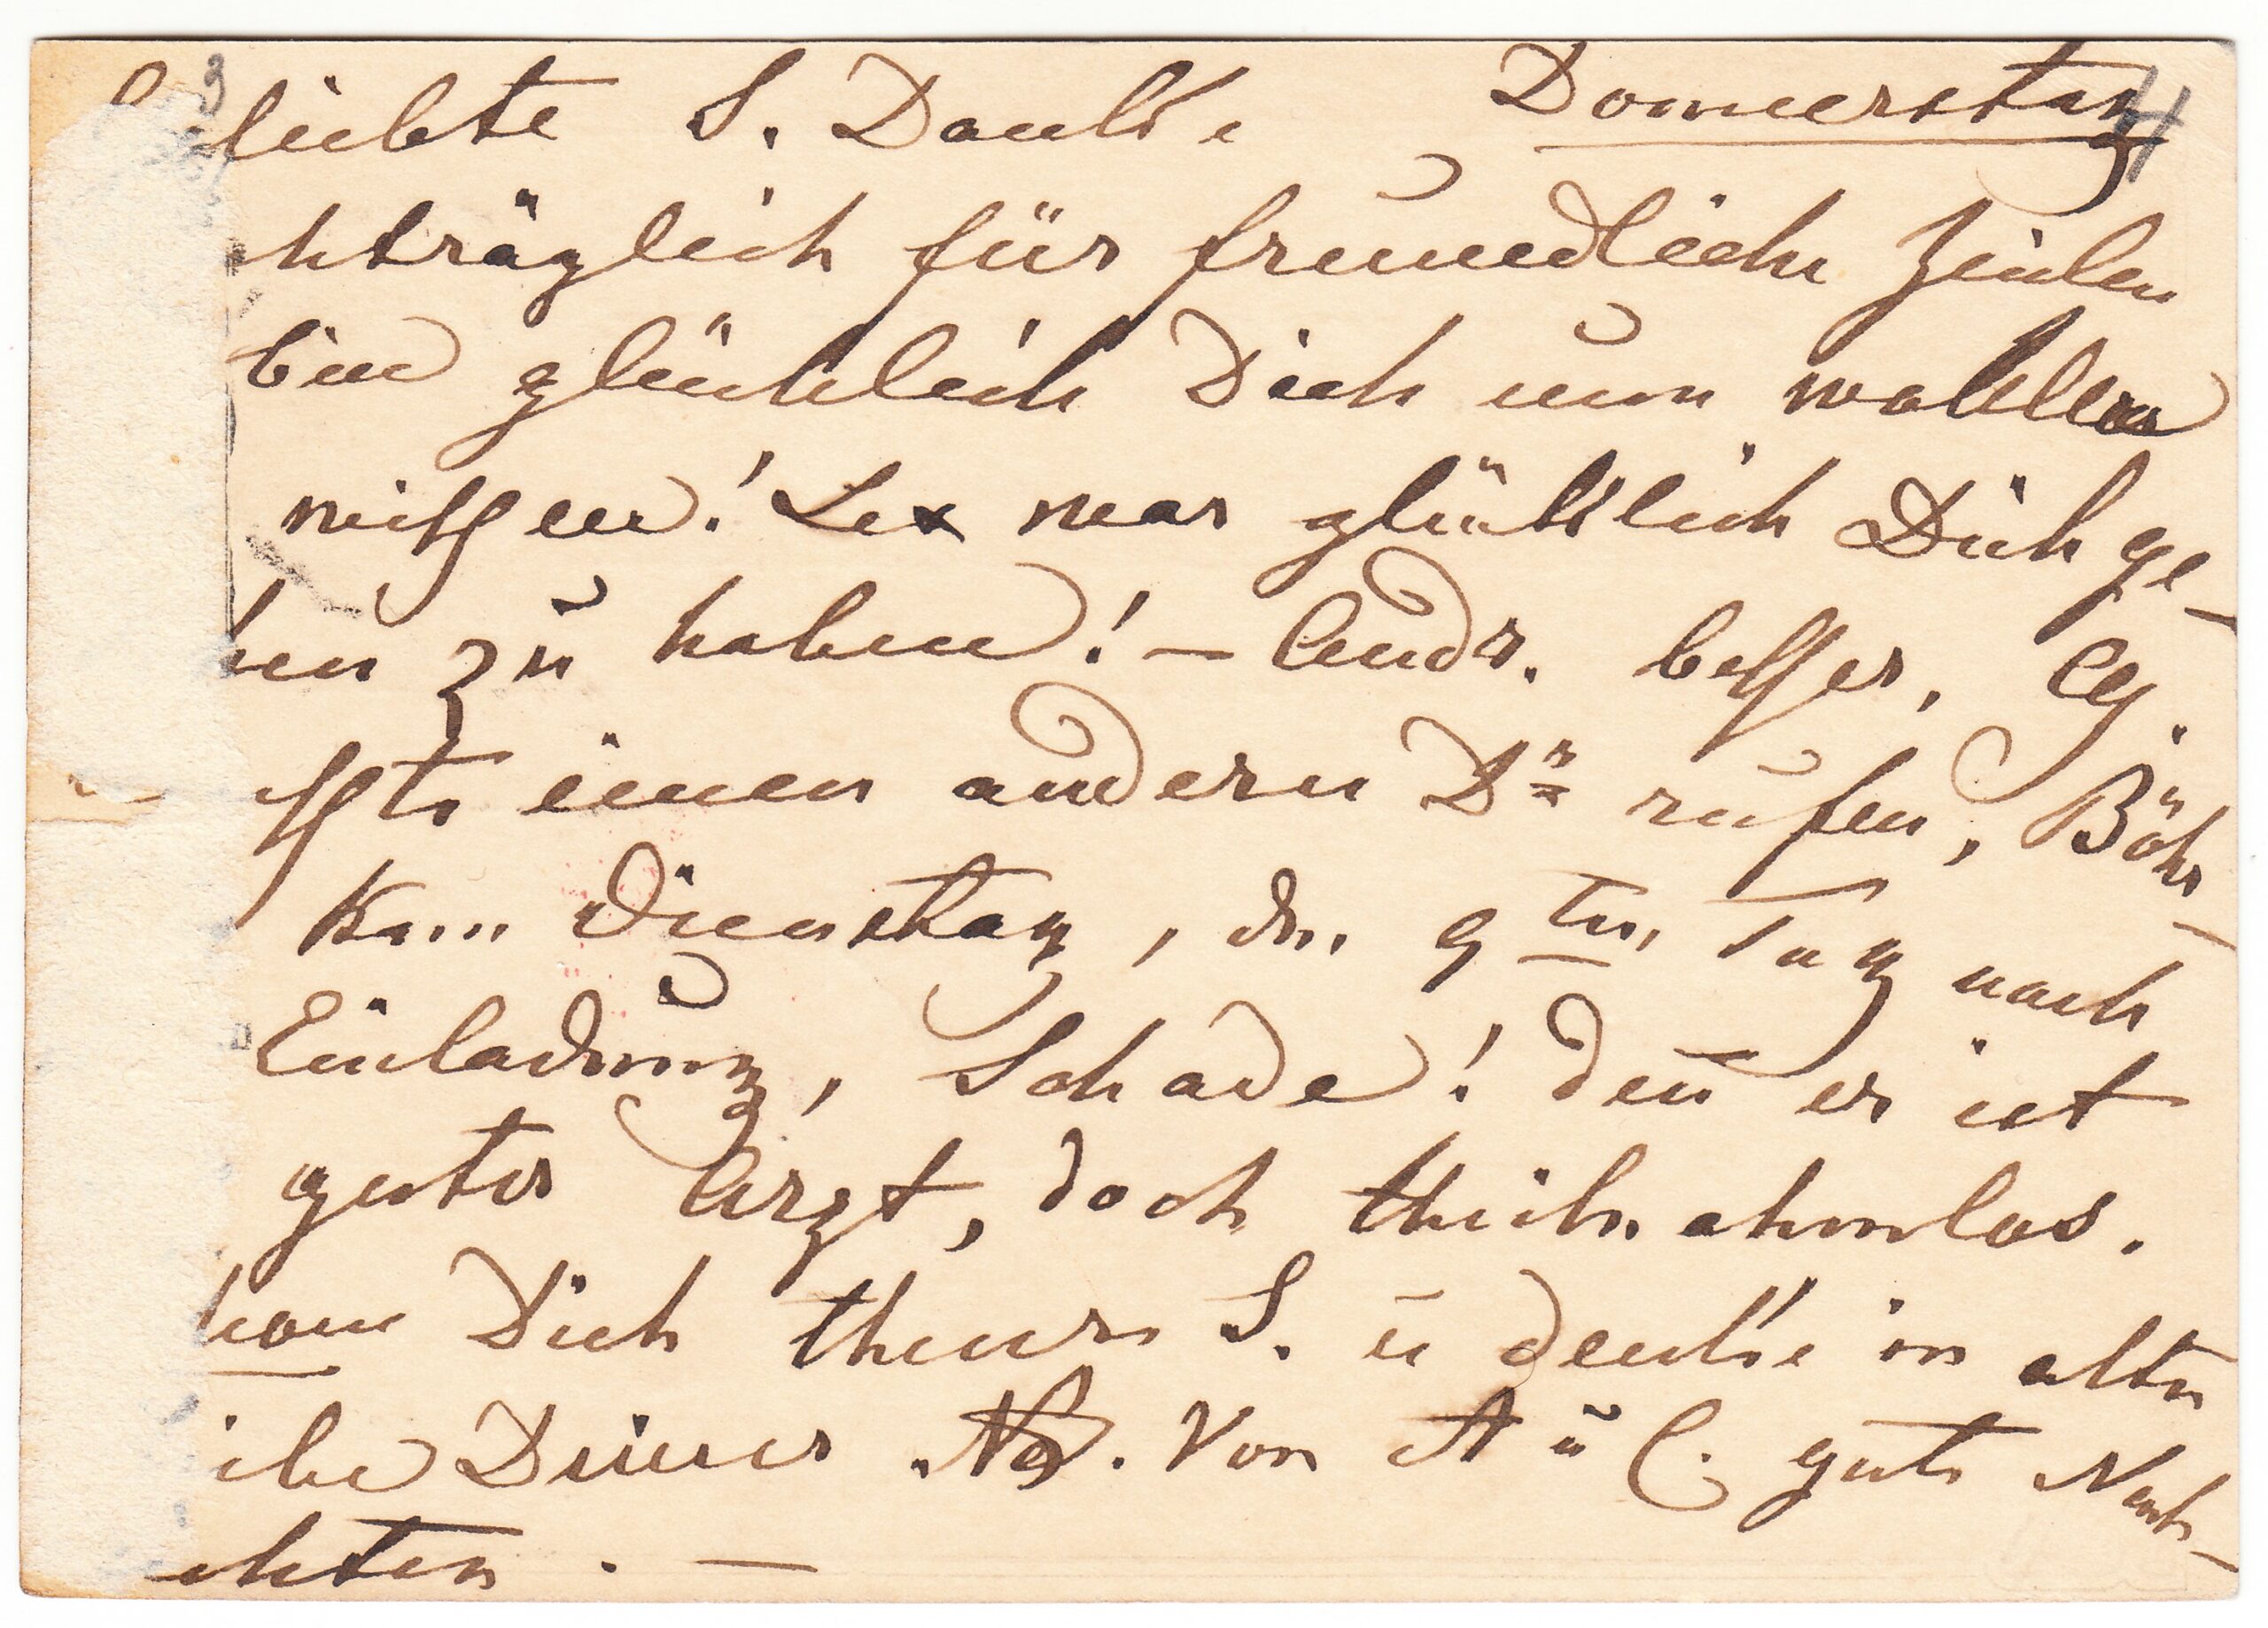 liebte S. Danke Donnerstag
chträglich für freundliche Zeilen
bin glücklich Dich nun wohler
wissen! Lex war glücklich Dich ge-
hen zu haben! – Andr. besser. Cg.
sste einen andern Dr rufen, Böhr-
kam Dienstag, dn. 9ten, Tag nach
Einladung, Schade! den̄ er ist
guter Arzt, doch theilnahmlos.
Dich theure S. u denke in alter
Deiner N. Von A u C. gute Nach-
chten. –